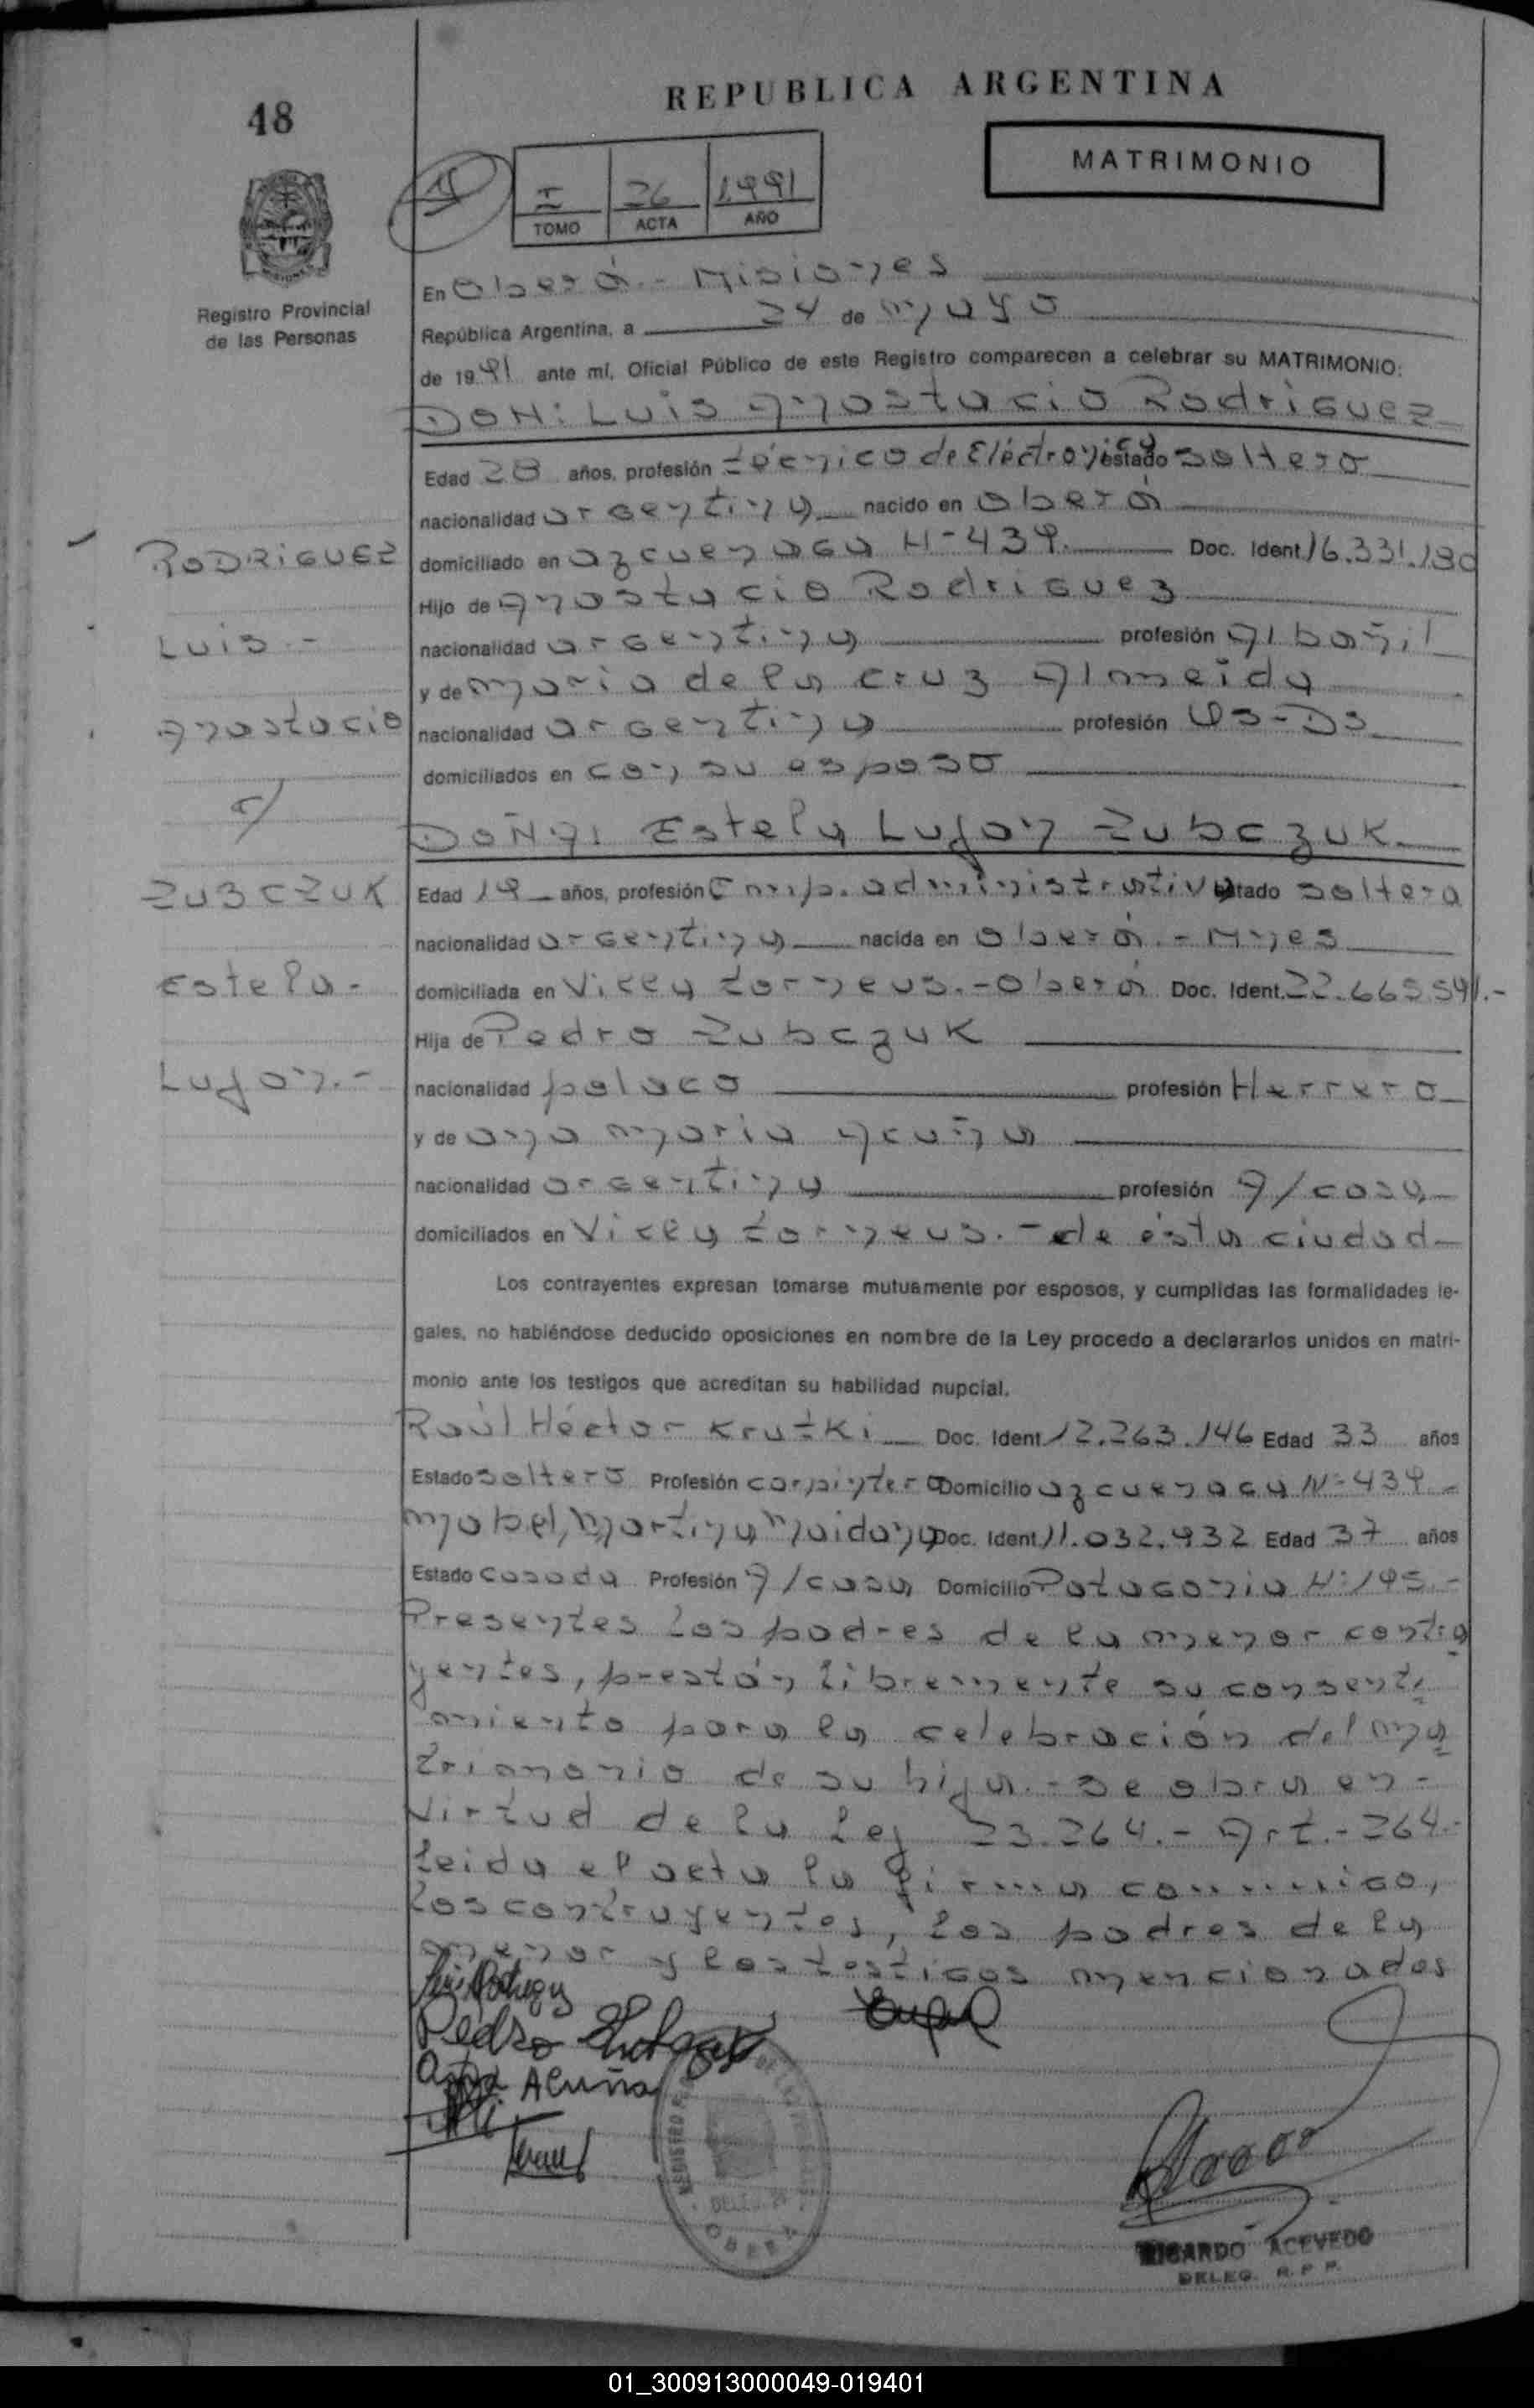 REPUBLICA ARGENTINA
48
MATRIMONIO
I 26 1991
TOMO ACTA AÑO
Registro Provincial
de las Personas
En Oberá.- Misiones
República Argentina, a 24 de mayo
de 1991 ante mí, Oficial Público de este Registro comparecen a celebrar su MATRIMONIO:
DON: Luis Anastacio Rodriguez
Edad 28 años, profesión técnico de Eléctronica estado soltero
nacionalidad argentina nacido en Oberá
domiciliado en azcuenaga N-439. Doc. Ident. 16.331.190
Hijo de Anastacio Rodriguez
nacionalidad argentina profesión Albañil
y de maria de la cruz Almeida
nacionalidad argentina profesión Qs-Ds
domiciliados en con su esposo
RODRIGUEZ
Luis.-
Anastacio
c/
ZUBCZUK
Estela.-
Lujan.-
DOÑA: Estela Lujan Zubczuk
Edad 19 años, profesión Emp. administrativa estado soltera
nacionalidad argentina nacida en Oberá.- Mnes
domiciliada en Villa torneus.- Oberá Doc. Ident. 22.665.591.-
Hija de Pedro Zubczuk
nacionalidad polaco profesión Herrero
y de ana maria acuña
nacionalidad argentina profesión A/casa
domiciliados en Villa torneus.- de ésta ciudad
Los contrayentes expresan tomarse mutuamente por esposos, y cumplidas las formalidades le-
gales, no habiéndose deducido oposiciones en nombre de la Ley procedo a declararlos unidos en matri-
monio ante los testigos que acreditan su habilidad nupcial.
Raúl Héctor Krutki Doc. Ident. 12.263.146 Edad 33 años
Estado soltero Profesión carpintero Domicilio azcuenaga Nº 439
mabel martina maidana Doc. Ident. 11.032.932 Edad 37 años
Estado casada Profesión A/casa Domicilio Patagonia Nº 195.-
Presentes los padres de la menor contra
yentes, prestán libremente su consenti
miento para la celebración del ma
trimonio de su hija.- se obra en-
virtud de la Ley 23.264.- Art.- 264.-
leida el acta la firma conmigo,
los contrayentes, los padres de la
menor y los testigos mencionados
Pedro
Acuña
REGISTRO
OBERA
RICARDO ACEVEDO
DELEG. R. P. P.
01_300913000049-019401